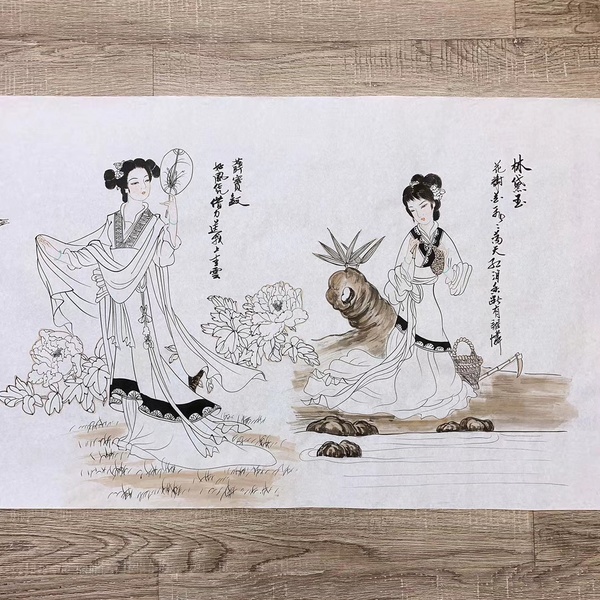 林黛玉
花謝花飛々滿天红消香断有誰憐
薛寶釵
好風凭借力送我上青雲